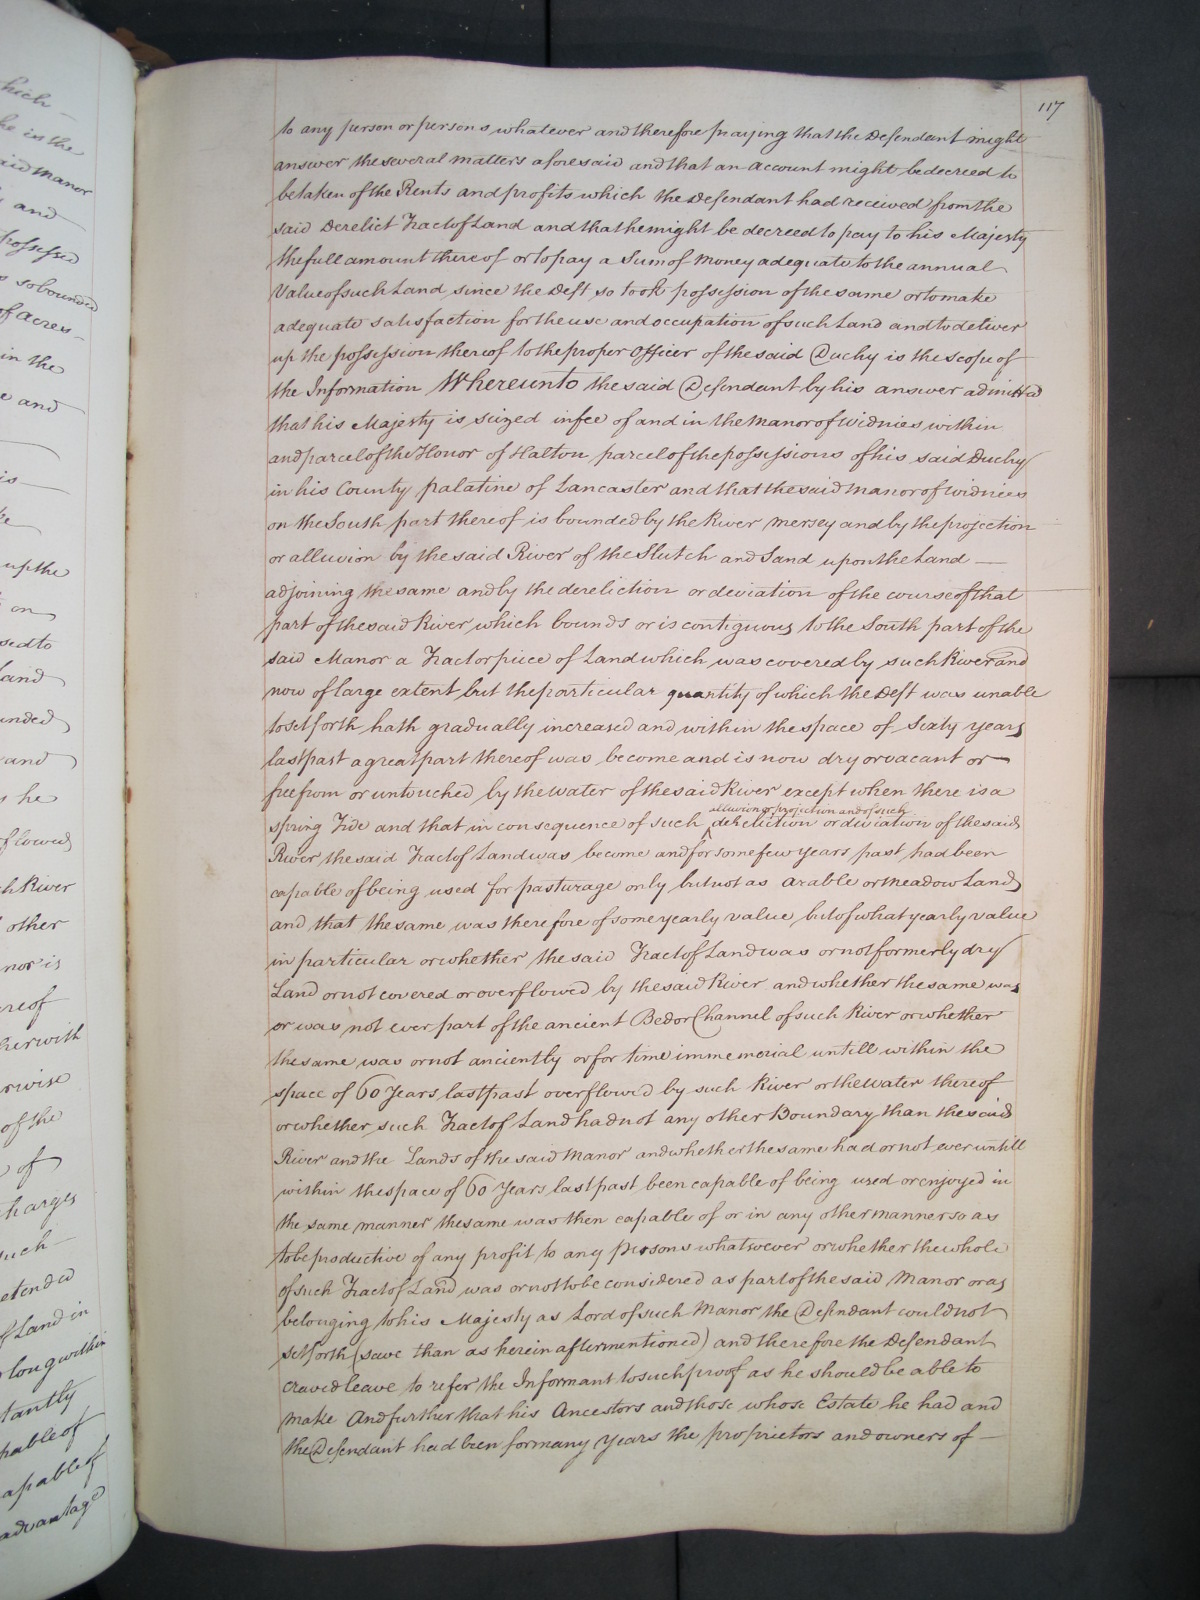 117
to any person or persons whatever and therefore praying that the Defendant might
answer the several matters aforesaid and that an Account might be decreed to
be taken of the Rents and profits which the Defendant had received from the
said Derelict Tract of Land and that he might be decreed to pay to his Majesty
the full amount thereof or to pay a Sum of Money adequate to the annual
Value of such Land since the Deft so took possession of the same or to make
adequate satisfaction for the use and occupation of such Land and to deliver
up the possession thereof to the proper Officer of the said Duchy is the scope of
the Information Whereunto the said Defendant by his answer admitted
that his Majesty is seized in fee of and in the Manor of Widnies within
and parcel of the Honor of Halton parcel of the possessions of his said Duchy
in his County palatine of Lancaster and that the said Manor of Widnies
on the South part thereof is bounded by the River Mersey and by the projection
or alluvion by the said River of the Slutch and Sand upon the Land —
adjoining the same and by the dereliction or deviation of the course of that
part of the said River which bounds or is contiguous to the South part of the
said Manor a Tract or piece of Land which was covered by such River and
now of large extent but the particular quantity of which the Deft was unable
to set forth hath gradually increased and within the space of Sixty years
last past a great part thereof was become and is now dry or vacant or —
free from or untouched by the Water of the said River except when there is a
alluvion or projection and of such
spring Tide and that in consequence of such ^ dereliction or deviation of the said
River the said Tract of Land was become and for some few years past had been
capable of being used for pasturage only but not as arable or meadow Land
and that the same was therefore of some yearly value but of what yearly value
in particular or whether the said Tract of Land was or not formerly dry
Land or not covered or overflowed by the said River and whether the same was
or was not ever part of the ancient Bed or Channel of such River or whether
the same was or not anciently or for time immemorial untill within the
space of 60 Years last past overflowed by such River or the Water thereof
or whether such Tract of Land had not any other Boundary than the said
River and the Lands of the said Manor and whether the same had or not ever untill
within the space of 60 Years last past been capable of being used or enjoyed in
the same manner the same was then capable of or in any other manner so as
to be productive of any profit to any persons whatsoever or whether the whole
of such Tract of Land was or not to be considered as part of the said Manor or as
belonging to his Majesty as Lord of such Manor the Defendant could not
set forth (save than as herein aftermentioned) and therefore the Defendant
craved leave to refer the Informant to such proof as he should be able to
make And further that his Ancestors and those whose Estate he had and
the Defendant had been for many Years the proprietors and owners of —